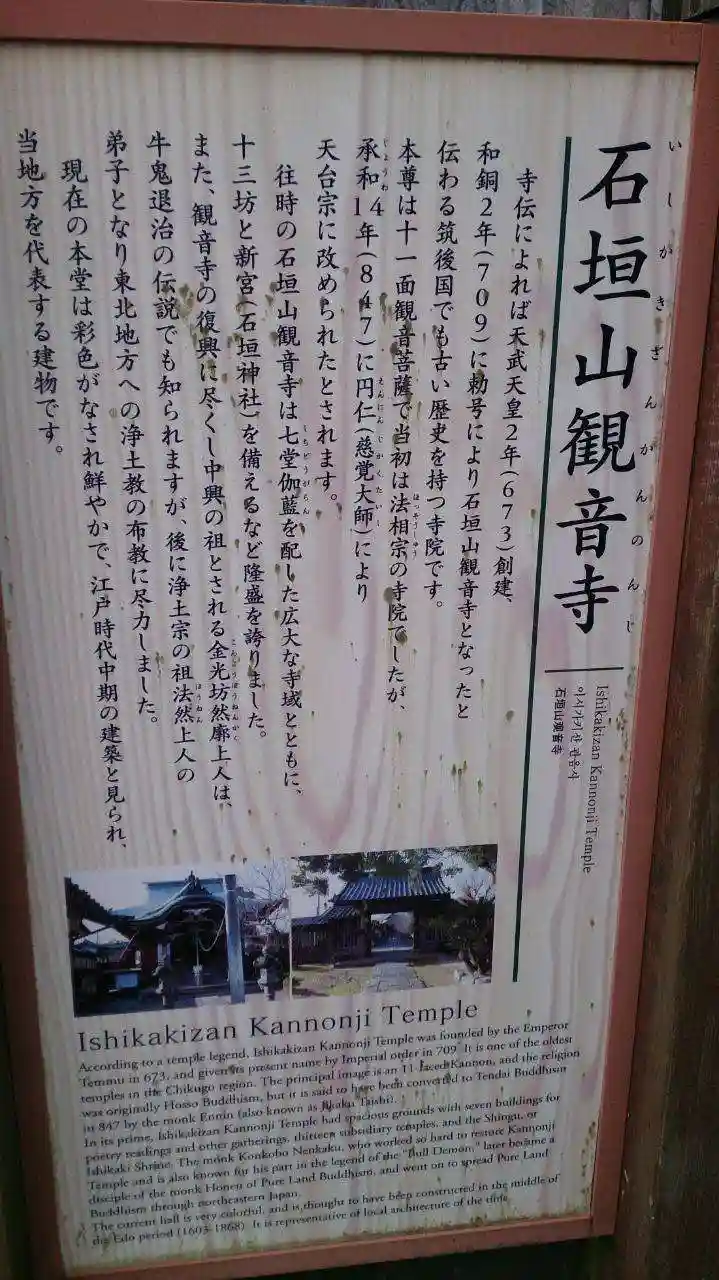 石垣山観音寺
いしがきざんかんのんじ
Ishikakizan Kannonji Temple
이시가키산 관음사
石垣山观音寺
寺伝によれば天武天皇2年(673)創建、
和銅2年(709)に勅号により石垣山観音寺となったと
伝わる筑後国でも古い歴史を持つ寺院です。
本尊は十一面観音菩薩で当初は法相宗の寺院でしたが、
承和14年(847)に円仁(慈覚大師)により
天台宗に改められたとされます。
往時の石垣山観音寺は七堂伽藍を配した広大な寺域とともに、
十三坊と新宮(石垣神社)を備えるなど隆盛を誇りました。
また、観音寺の復興に尽くし中興の祖とされる金光坊然廓上人は、
牛鬼退治の伝説でも知られますが、後に浄土宗の祖法然上人の
弟子となり東北地方への浄土教の布教に尽力しました。
現在の本堂は彩色がなされ鮮やかで、江戸時代中期の建築と見られ、
当地方を代表する建物です。
Ishikakizan Kannonji Temple
According to a temple legend, Ishikakizan Kannonji Temple was founded by the Emperor
Temmu in 673, and given its present name by Imperial order in 709. It is one of the oldest
temples in the Chikugo region. The principal image is an 11-faced Kannon, and the religion
was originally Hosso Buddhism, but it is said to have been converted to Tendai Buddhism
in 847 by the monk Ennin (also known as Jikaku Taishi).
In its prime, Ishikakizan Kannonji Temple had spacious grounds with seven buildings for
poetry readings and other gatherings, thirteen subsidiary temples, and the Shingu, or
Ishikaki Shrine. The monk Konkobo Nenkaku, who worked so hard to restore Kannonji
Temple and is also known for his part in the legend of the "Bull Demon," later became a
disciple of the monk Honen of Pure Land Buddhism, and went on to spread Pure Land
Buddhism through northeastern Japan.
The current hall is very colorful, and is thought to have been constructed in the middle of
the Edo period (1603-1868). It is representative of local architecture of the time.